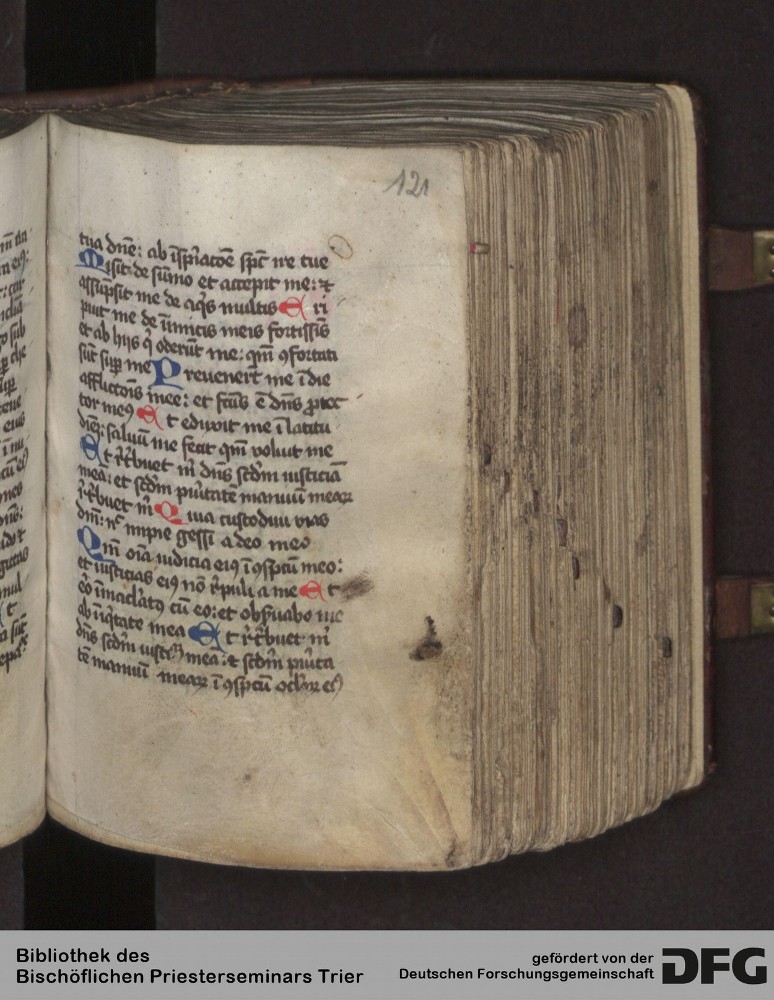 121
tua dn̄e: ab īsp̄iatōe sp̄c ire tue
Misit de sūmo et accepit me: ⁊
assūpsit me de aq̄s multis Eri
puit me de īimicis meis fortissīs
et ab hijs q̄ oderūt me: qm̄ ꝯfortati
sūt sup̄ me Preuenerūt me ī die
afflictōis mee: et fc̄us ē dn̄s ꝓtec
tor meꝰ Et eduxit me ī latitu
dīeꝫ: saluū me fecit qm̄ voluit me
Et r̄t̄buet m̄ dn̄s scd̄m iusticiā
meā: et scd̄m puritatē manuū meaꝝ
r̄t̄buet m̄ Quia custodiui vias
dn̄i: n̄c impie gessi a deo meo
Qm̄ oīa iudicia eiꝰ ī ꝯspc̄tu meo:
et iusticias eiꝰ nō rep̄uli a me Et
ero īmaclatꝰ cū eo: et obs̄uabo me
ab īiq̄tate mea Et r̄t̄buet m̄
dn̄s scd̄m iusticiā meā: ⁊ scd̄m pūita
tē manuū meaꝝ ī ꝯspc̄tu oclōꝝ eiꝰ
Bibliothek des
Bischöflichen Priesterseminars Trier
gefördert von der
Deutschen Forschungsgemeinschaft DFG